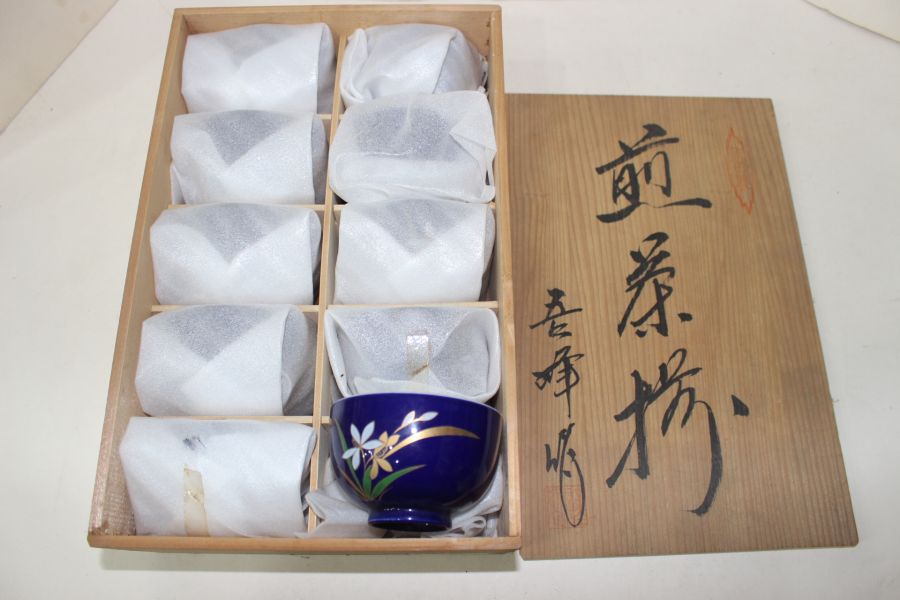 煎茶揃
吾峰